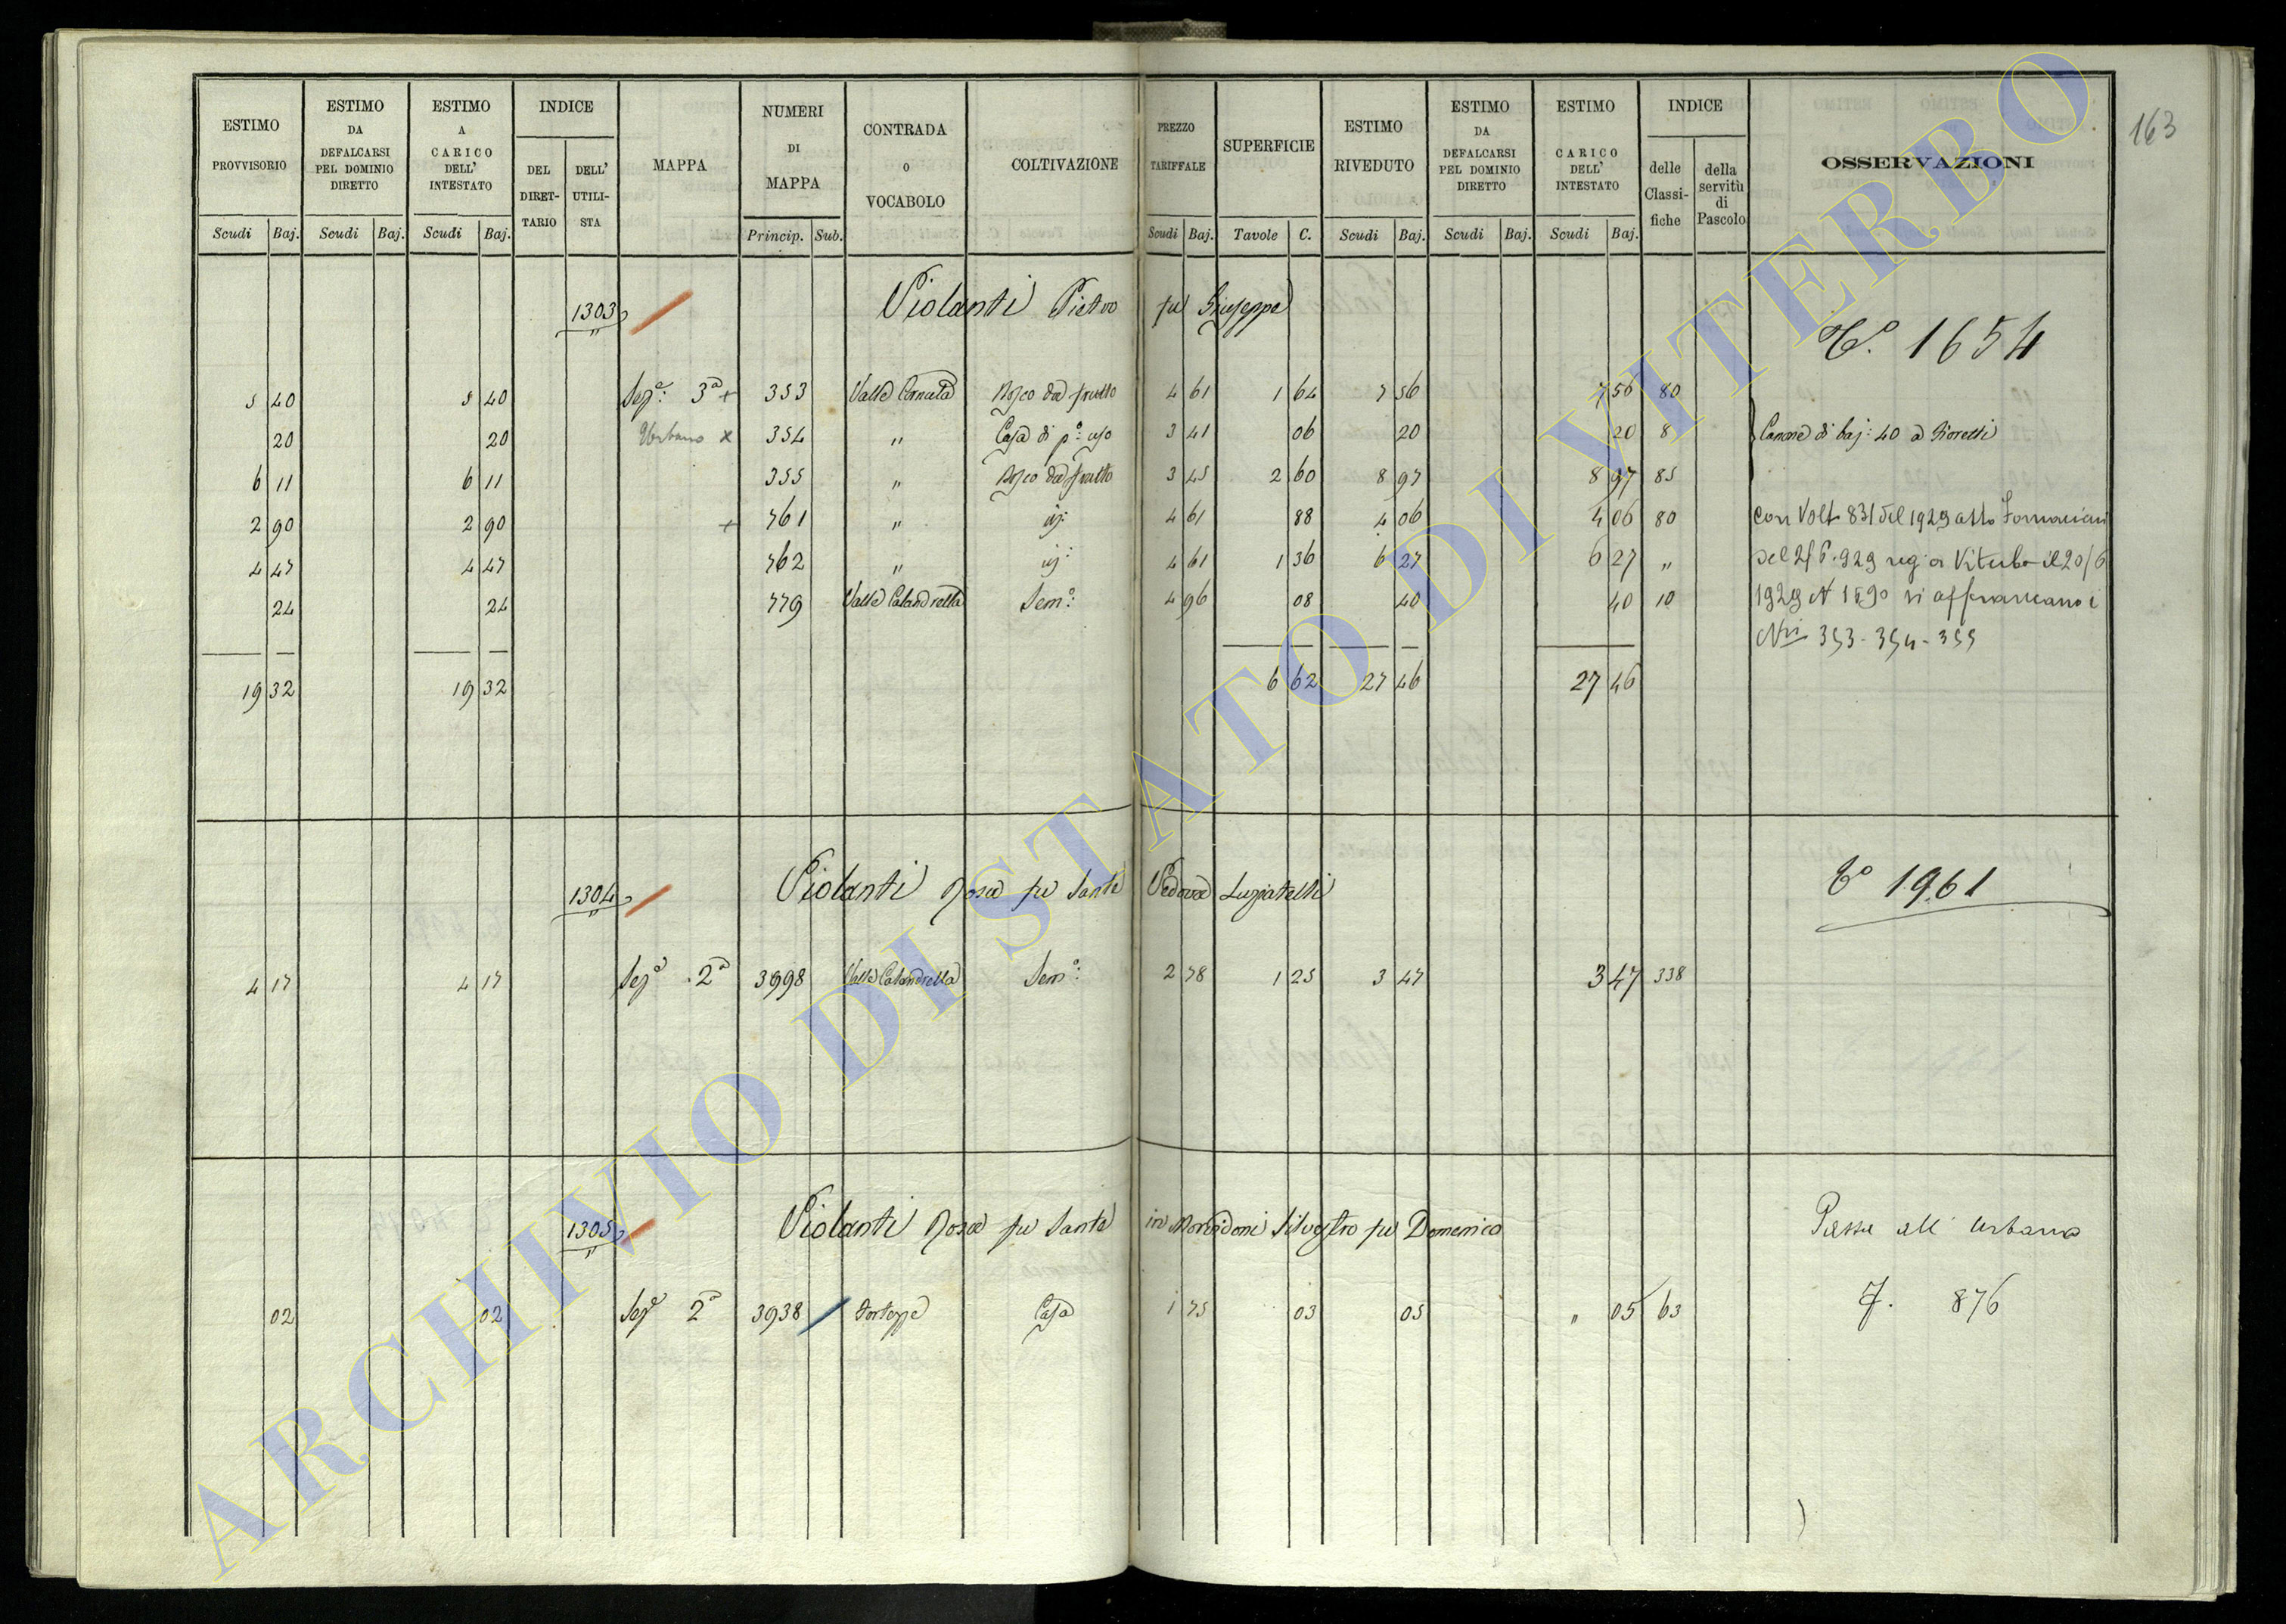 163
ESTIMO PROVVISORIO
ESTIMO DA DEFALCARSI PEL DOMINIO DIRETTO
ESTIMO A CARICO DELL' INTESTATO
INDICE
DEL DIRET-TARIO
DELL' UTILI-STA
MAPPA
NUMERI DI MAPPA
CONTRADA o VOCABOLO
COLTIVAZIONE
PREZZO TARIFFALE
SUPERFICIE
ESTIMO RIVEDUTO
ESTIMO DA DEFALCARSI PEL DOMINIO DIRETTO
ESTIMO A CARICO DELL' INTESTATO
INDICE
delle Classi-fiche
della servitù di Pascolo
OSSERVAZIONI
Scudi Baj. Scudi Baj. Scudi Baj. Princip. Sub. Scudi Baj. Tavole C. Scudi Baj. Scudi Baj. Scudi Baj.
1303 Violanti Pietro fu Giuseppe
1654
5 40 5 40 Sez.e 3a + 353 Valle Bosco da frutto 4 61 1 64 7 56 7 56 80
20 20 Urbano x 354 " Casa di po: uso 3 41 06 20 20 8 Canone di baj: 40 a Fioretti
6 11 6 11 355 " Bosco da frutto 3 45 2 60 8 97 8 97 85
2 90 2 90 + 761 " 4 61 88 4 06 4 06 80 con Volt 831 del 1929 atto
4 47 4 47 762 " 4 61 1 36 6 27 6 27 " del 2/6.929 reg a Viterbo il 20/6
24 24 779 Valle Calandrella Sem.o 4 96 08 40 40 10 1929 N 1590 si affrancano i
Nri 353-354-355
19 32 19 32 6 62 27 46 27 46
1304 Violanti Rosa fu Sante Vedova Luzzatelli
1961
4 17 4 17 Sez.e 2a 3998 Valle Calandrella Sem.o 2 78 1 25 3 47 3 47 338
1305 Violanti Rosa fu Sante in Silvestro fu Domenico
Passa all Urbano
02 02 Sez.e 2a 3938 Casa 1 75 03 05 " 05 63 876
ARCHIVIO DI STATO DI VITERBO